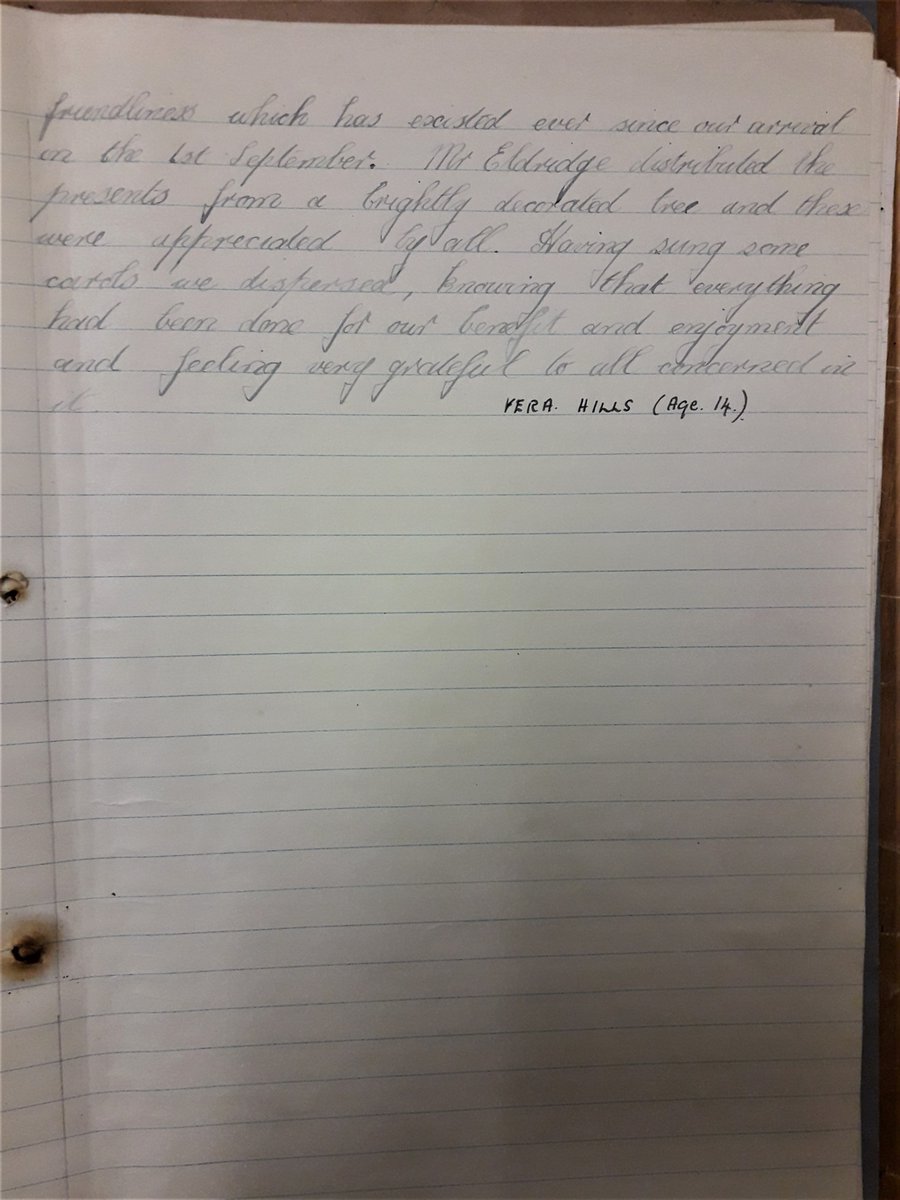 friendliness which has excisted ever since our arrival
on the 1st September. Mr Eldridge distributed the
presents from a brightly decorated tree and these
were appreciated by all. Having sung some
carols we dispersed, knowing that everything
had been done for our benefit and enjoyment
and feeling very grateful to all concerned in
it.
VERA. HILLS (Age. 14.)